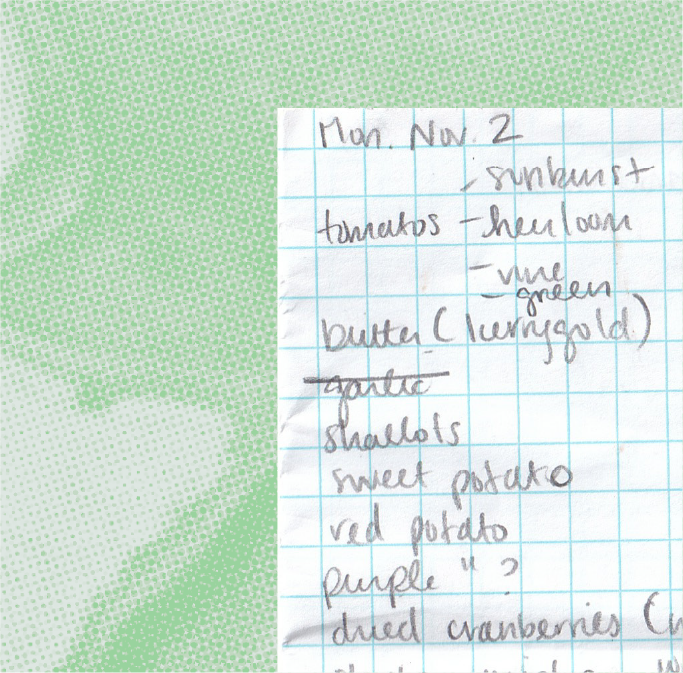 Mon. Nov. 2
- sunburst
tomatos - heirloom
- vine
- green
butter (kerrygold)
garlic
shallots
sweet potato
red potato
purple " ?
dried cranberries (